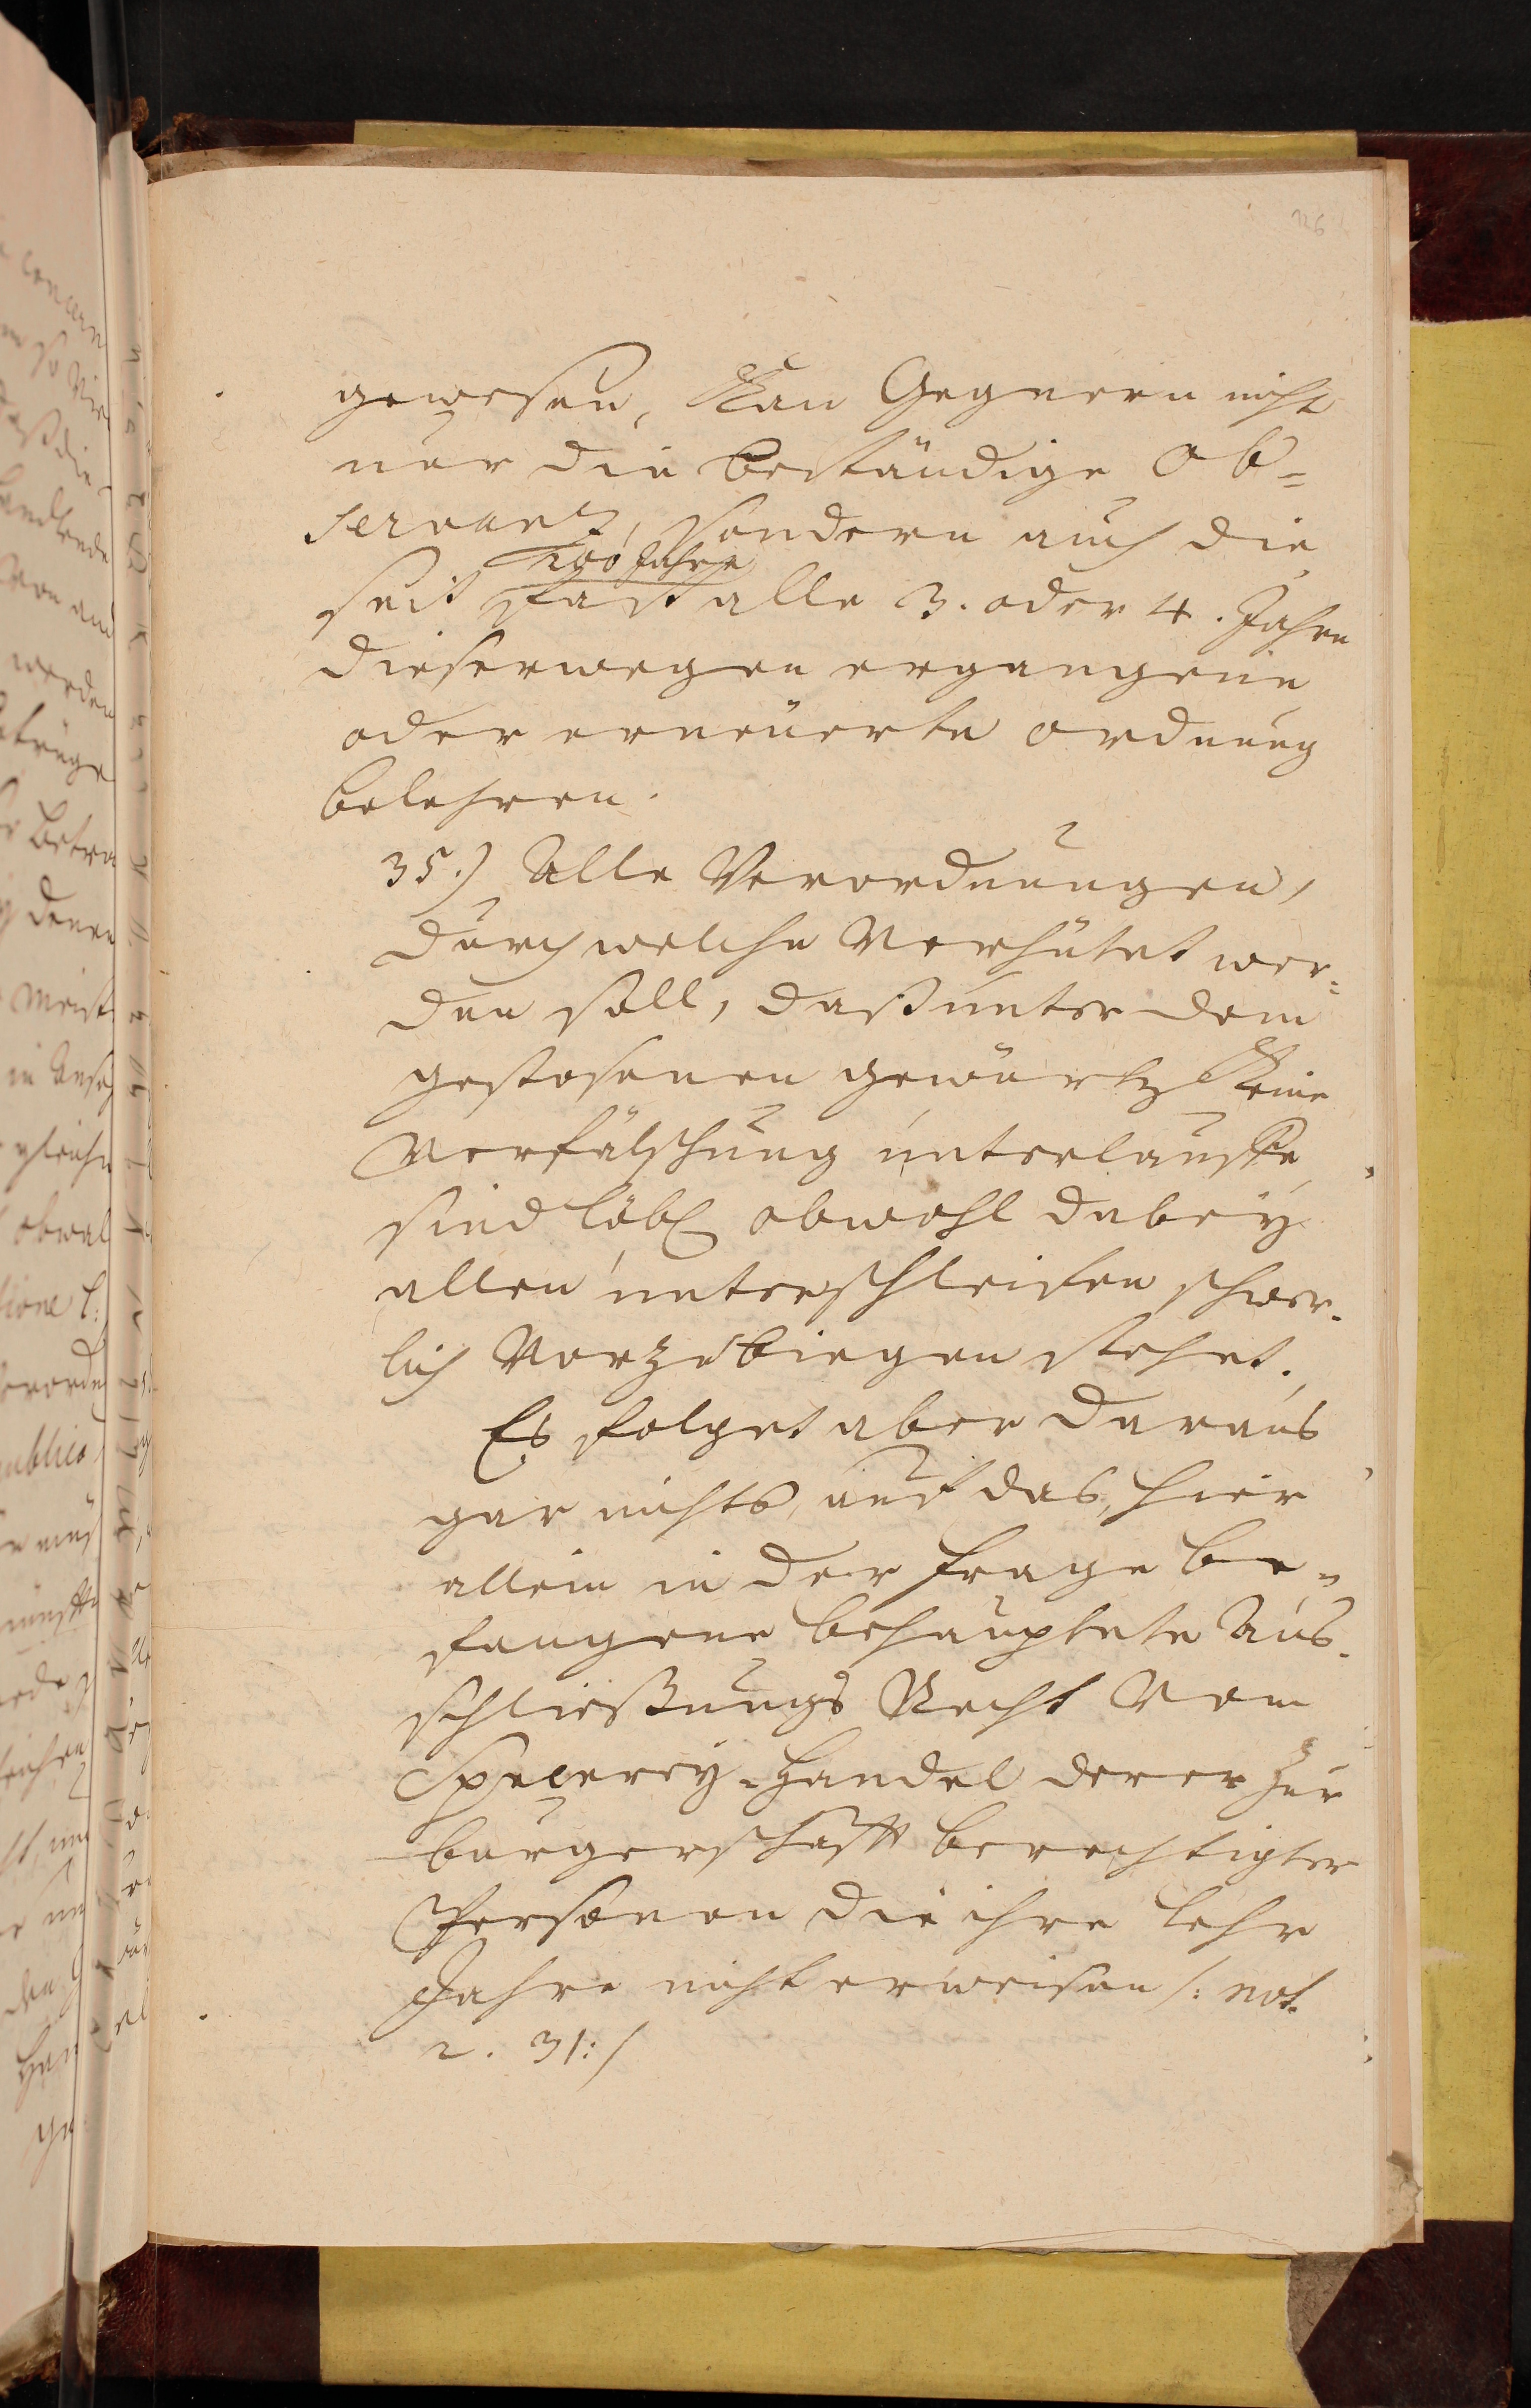 126
gewesen, kan Gegnern nicht
nur die beständige Ob=
servantz, sondern auch die
200 Jahre
seit fast alle 3. oder 4. Jahre
dieserwegen ergangene
oder erneuerte ordnung
belehren.
35.) Alle Verordnungen,
durch welche Verhütet wer=
den soll, daß unter dem
gestosenen gewürtz keine
Verfälschung unterlauffe,
sind löbl obwohl dabey
allen unterschleifen schwer=
lich Vorzubiegen stehet.
Es folget aber daraus
gar nichts, auf das, hier
allein in der frage be=
fangene behauptete Aus=
schließungs Recht Vom
Specerey=Handel derer zur
burgerschafft berechtigter
Personen die ihre lehr
Jahre nicht erweisen /: not.
2. 31:/